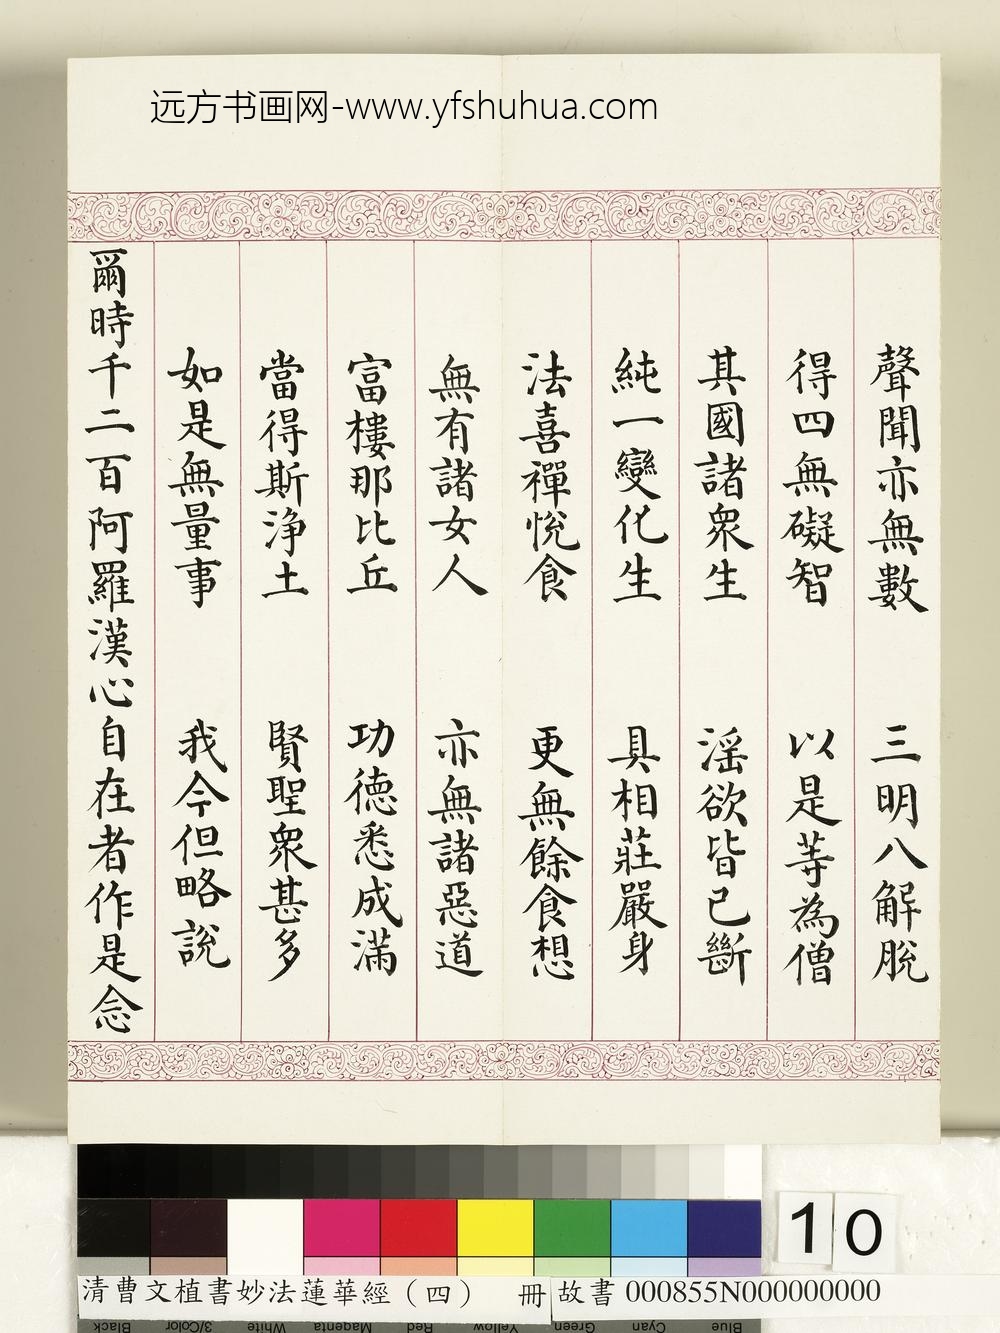 远方书画网-www.yfshuhua.com
聲聞亦無數 三明八解脫
得四無礙智 以是等為僧
其國諸衆生 淫欲皆已斷
純一變化生 具相莊嚴身
法喜禪悅食 更無餘食想
無有諸女人 亦無諸惡道
富樓那比丘 功德悉成滿
當得斯淨土 賢聖衆甚多
如是無量事 我今但略說
爾時千二百阿羅漢心自在者作是念
10
清曹文植書妙法蓮華經（四） 冊
故書 000855N000000000
Black 3/Color White Magenta Red Yellow Green Cyan Blue